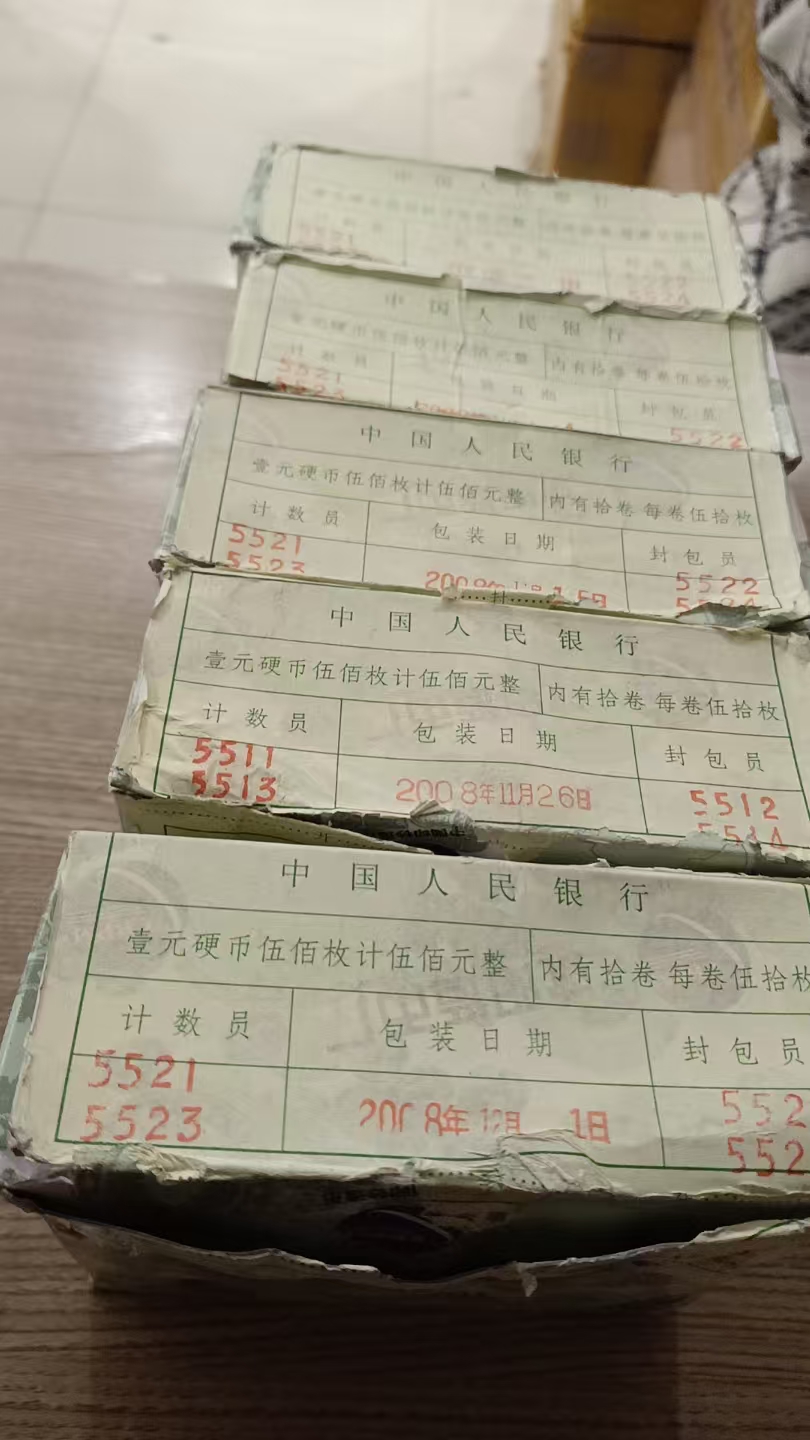 中国人民银行
5521
中国人民银行
壹元硬币伍佰枚计伍佰元整 内有拾卷 每卷伍拾枚
计数员 包装日期 封包员
5521 5522
5523
中国人民银行
壹元硬币伍佰枚计伍佰元整 内有拾卷 每卷伍拾枚
计数员 包装日期 封包员
5521 5522
5523
封
中国人民银行
壹元硬币伍佰枚计伍佰元整 内有拾卷 每卷伍拾枚
计数员 包装日期 封包员
5511 5512
5513 2008年11月26日 5514
中国人民银行
壹元硬币伍佰枚计伍佰元整 内有拾卷 每卷伍拾枚
计数员 包装日期 封包员
5521 552
5523 2008年12月 1日 552